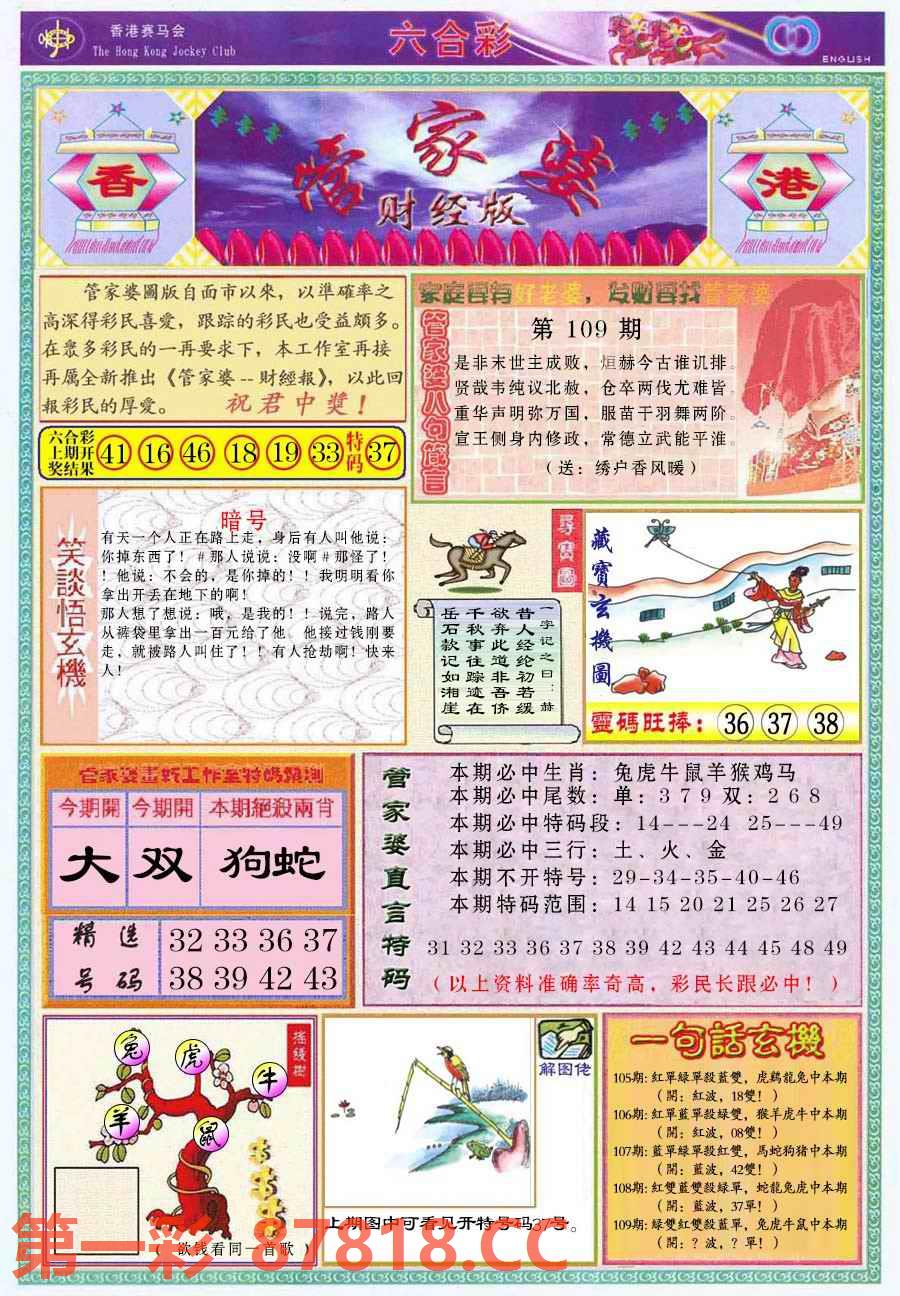 香港赛马会
The Hong Kong Jockey Club
六合彩
ENGLISH
香
管家婆
财经版
港
管家婆圖版自面市以來，以準確率之
高深得彩民喜愛，跟踪的彩民也受益頗多。
在眾多彩民的一再要求下，本工作室再接
再厲全新推出《管家婆--財經報》，以此回
報彩民的厚愛。 祝君中獎！
六合彩
上期开
奖结果
41 16 46 18 19 33 特码 37
家庭要有好老婆，发财要找管家婆
管家婆八句箴言
第 109 期
是非末世主成败，烜赫今古谁讥排。
贤哉韦纯议北赦，仓卒两伐尤难皆。
重华声明弥万国，服苗干羽舞两阶。
宣王侧身内修政，常德立武能平淮。
（送：绣户香风暖）
笑談悟玄機
暗号
有天一个人正在路上走，身后有人叫他说：
你掉东西了！＃那人说说：没啊＃那怪了！
！他说：不会的，是你掉的！！我明明看你
拿出开丢在地下的啊！
那人想了想说：哦，是我的！！说完，路人
从裤袋里拿出一百元给了他。他接过钱刚要
走，就被路人叫住了！！有人抢劫啊！快来
人！
尋寶圖
一字记之曰：赫
昔人经纶初若缓
欲弃此道非吾侪
千秋事往踪迹在
岳石款记如湘崖
藏寶玄機圖
靈碼旺捧：36 37 38
管家婆畫新工作室特碼預測
今期開 今期開 本期絕殺兩肖
大 双 狗蛇
精选
号码
32 33 36 37
38 39 42 43
管家婆直言特码
本期必中生肖：兔虎牛鼠羊猴鸡马
本期必中尾数：单：3 7 9 双：2 6 8
本期必中特码段：14---24 25---49
本期必中三行：土、火、金
本期不开特号：29-34-35-40-46
本期特码范围：14 15 20 21 25 26 27
31 32 33 36 37 38 39 42 43 44 45 48 49
（以上资料准确率奇高，彩民长跟必中！）
摇錢樹
兔
虎
牛
羊
鼠
（欲钱看同一首歌）
解图佬
上期图中可看见开特号码37号。
一句話玄機
105期：紅單緑單殺藍雙，虎鷄龍兔中本期
（開：紅波，18雙！）
106期：紅單藍單殺緑雙，猴羊虎牛中本期
（開：紅波，08雙！）
107期：藍單緑單殺紅雙，馬蛇狗猪中本期
（開：藍波，42雙！）
108期：紅雙藍雙殺緑單，蛇龍兔虎中本期
（開：藍波，37單！）
109期：緑雙紅雙殺藍單，兔虎牛鼠中本期
（開：？波，？單！）
第一彩 87818.CC